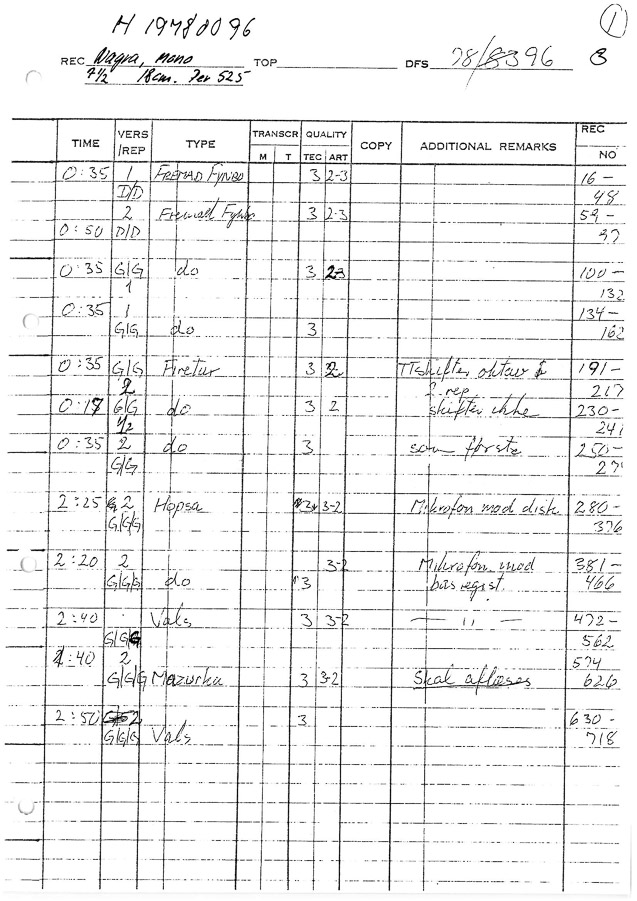 1
H 1978/0096
REC Nagra, mono TOP DFS 78/ 96 B
7 1/2 18cm. Per 525
TIME VERS /REP TYPE TRANSCR QUALITY COPY ADDITIONAL REMARKS REC NO
M T TEC ART
0:35 1 FREMAD FYNBO 3 2-3 16-
D/D 48
2 Fremad Fynbo 3 2-3 59-
0:50 D/D 97
0:35 G/G do 3 2-3 100-
1 132
0:35 1 134-
G/G do 3 162
0:35 G/G Firetur 3 2 skifter oktav i 191-
2 2. rep 217
0:17 G/G do 3 2 skifter ikke 230-
1/2 241
0:35 2 do 3 som første 250-
G/G 27
2:25 2 Hopsa 3 3-2 Mikrofon mod disk 280-
G/G/G 376
2:20 2 3-2 Mikrofon mod 381-
G/G/G do 3 basregist. 466
2:40 Vals 3 3-2 — " — 472-
G/G/G 562
1:40 2 574
G/G/G Mazurka 3 3-2 Skal aflæses 626
2:50 2 3 630-
G/G/G Vals 718